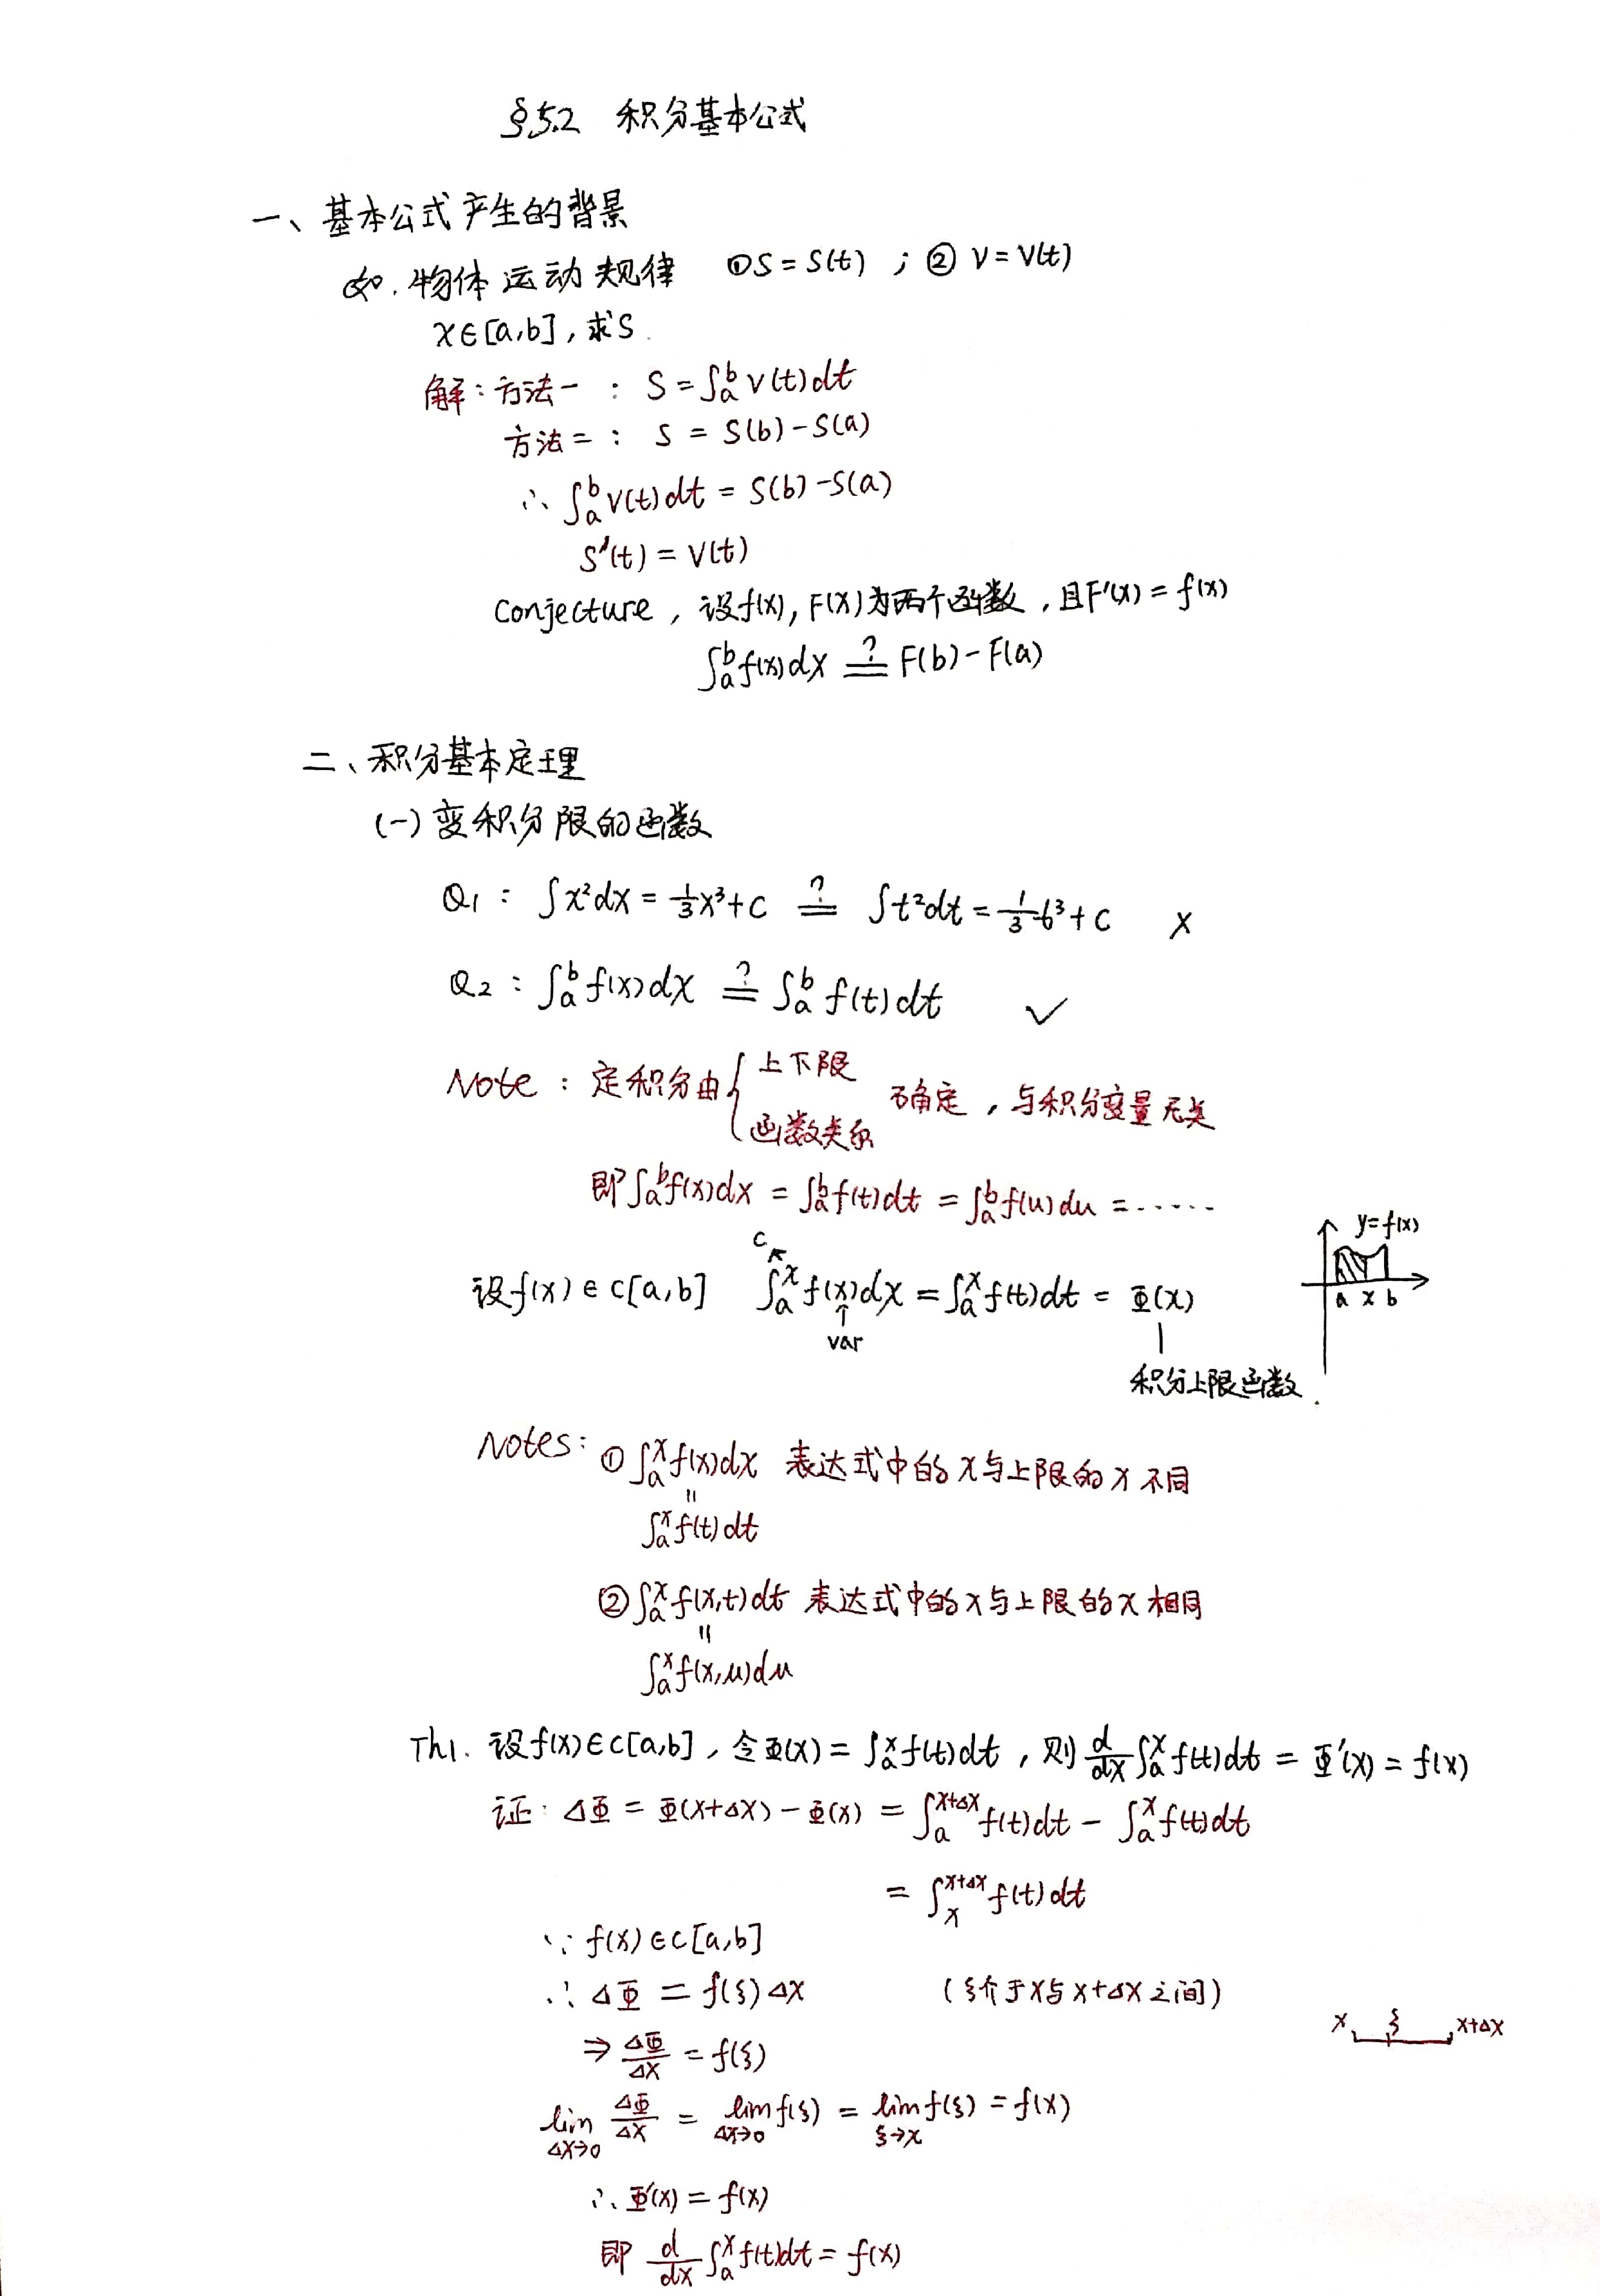 §5.2 积分基本公式
一、基本公式产生的背景
如.物体运动规律 ①S=S(t) ; ② V=V(t)
x∈[a,b], 求S.
解:方法一: S=∫ₐᵇ V(t)dt
方法二: S = S(b)-S(a)
∴ ∫ₐᵇ V(t)dt = S(b)-S(a)
S'(t) = V(t)
Conjecture, 设f(x), F(x)为两个函数, 且F'(x)=f(x)
∫ₐᵇ f(x)dx ≟ F(b)-F(a)
二、积分基本定理
(一)变积分限的函数
Q₁: ∫x²dx = 1/3 x³+C ≟ ∫t²dt = 1/3 t³+C ×
Q₂: ∫ₐᵇ f(x)dx ≟ ∫ₐᵇ f(t)dt ✓
Note: 定积分由{上下限
函数关系
确定, 与积分变量无关
即∫ₐᵇ f(x)dx = ∫ₐᵇ f(t)dt = ∫ₐᵇ f(u)du = ......
y=f(x)
C
设f(x)∈C[a,b] ∫ₐˣ f(x)dx = ∫ₐˣ f(t)dt = Φ(x)
a x b
var
积分上限函数.
Notes: ① ∫ₐˣ f(x)dx 表达式中的x与上限的x不同
=
∫ₐˣ f(t)dt
② ∫ₐˣ f(x,t)dt 表达式中的x与上限的x相同
=
∫ₐˣ f(x,u)du
Th1. 设f(x)∈C[a,b], 令Φ(x) = ∫ₐˣ f(t)dt, 则 d/dx ∫ₐˣ f(t)dt = Φ'(x) = f(x)
证: ΔΦ = Φ(x+Δx)-Φ(x) = ∫ₐ^(x+Δx) f(t)dt - ∫ₐˣ f(t)dt
= ∫ₓ^(x+Δx) f(t)dt
∵ f(x)∈C[a,b]
∴ ΔΦ = f(ξ)Δx (ξ介于x与x+Δx之间)
x ξ x+Δx
⇒ ΔΦ/Δx = f(ξ)
lim Δx→0 ΔΦ/Δx = lim Δx→0 f(ξ) = lim ξ→x f(ξ) = f(x)
∴ Φ'(x) = f(x)
即 d/dx ∫ₐˣ f(t)dt = f(x)